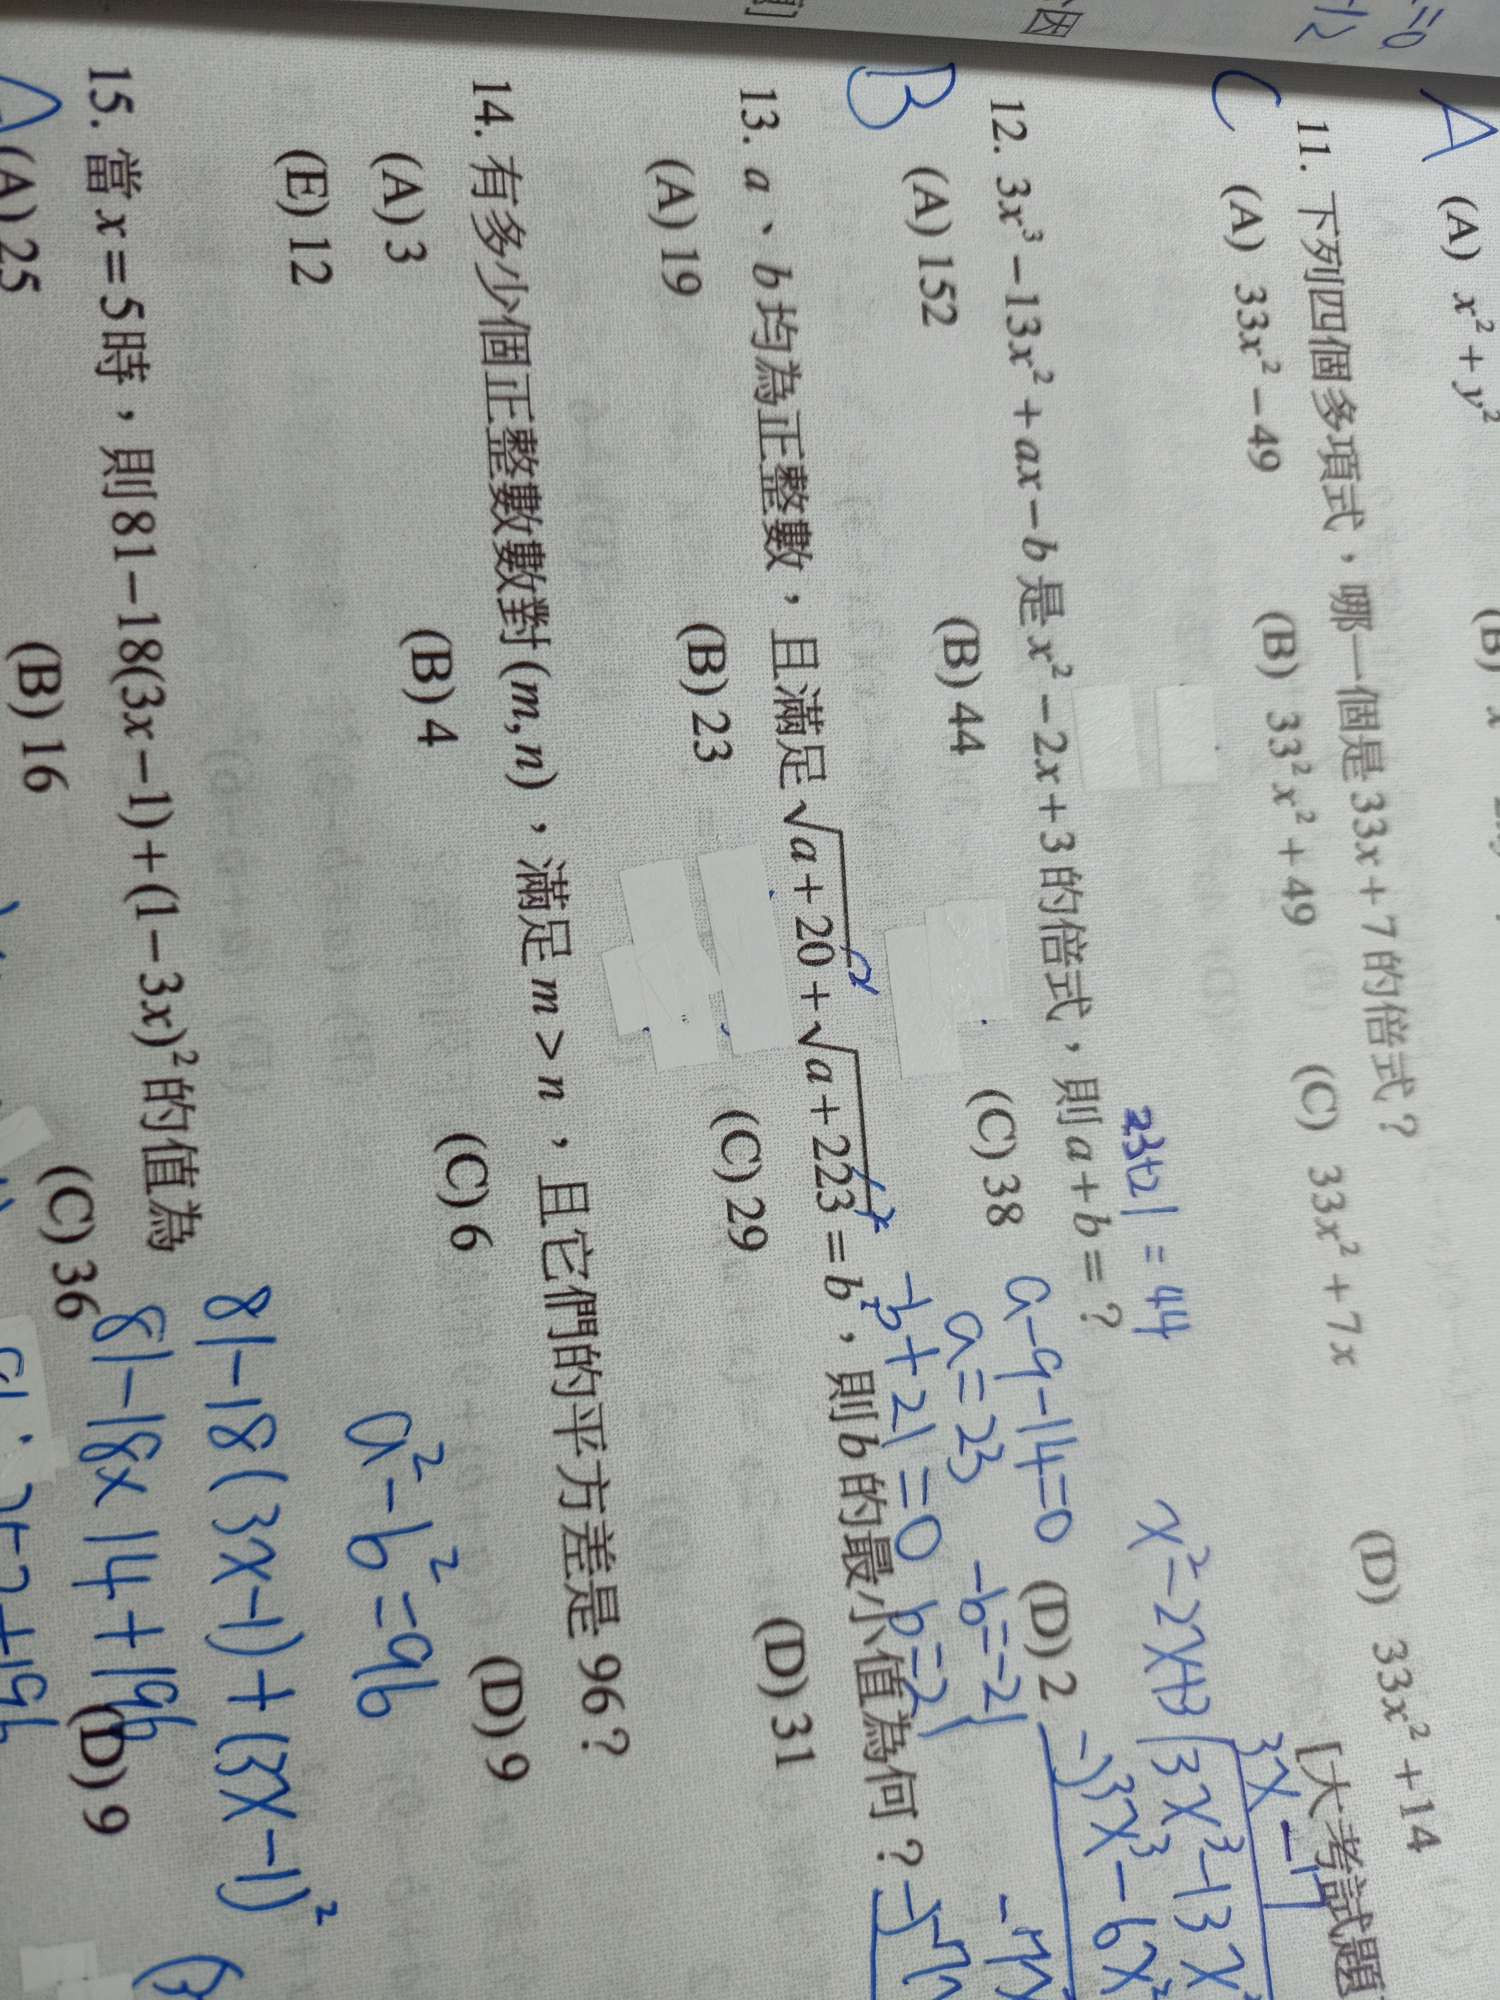 (A) x² + y²
A
11. 下列四個多項式，哪一個是 33x + 7 的倍式？
[大考試題
(A) 33x² − 49 (B) 33²x² + 49 (C) 33x² + 7x (D) 33x² + 14
C
12. 3x³ − 13x² + ax − b 是 x² − 2x + 3 的倍式，則 a + b = ?
23+21 = 44
(A) 152 (B) 44 (C) 38 (D) 2
B
a−9−14=0
a=23
−b+21=0
−b=−21
b=21
x²−2x+3
3x −7
3x³−13x²
−)3x³−6x²
13. a、b 均為正整數，且滿足 √a+20 + √a+223 = b，則 b 的最小值為何？
(A) 19 (B) 23 (C) 29 (D) 31
14. 有多少個正整數數對 (m, n)，滿足 m > n，且它們的平方差是 96？
(A) 3 (B) 4 (C) 6 (D) 9
(E) 12
a²−b²=96
15. 當 x = 5 時，則 81 − 18(3x − 1) + (1 − 3x)² 的值為
81−18(3x−1)+(3x−1)²
81−18×14+196
(A) 25 (B) 16 (C) 36 (D) 9
A